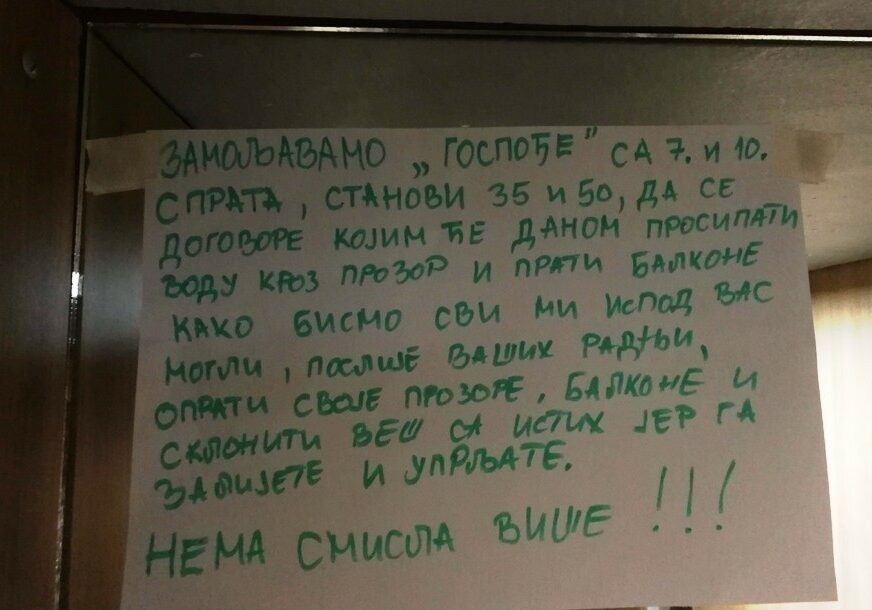 ЗАМОЉАВАМО „ГОСПОЂЕ" СА 7. И 10.
СПРАТА, СТАНОВИ 35 И 50, ДА СЕ
ДОГОВОРЕ КОЈИМ ЋЕ ДАНОМ ПРОСИПАТИ
ВОДУ КРОЗ ПРОЗОР И ПРАТИ БАЛКОНЕ
КАКО БИСМО СВИ МИ ИСПОД ВАС
МОГЛИ, ПОСЛИЈЕ ВАШИХ РАДЊИ,
ОПРАТИ СВОЈЕ ПРОЗОРЕ, БАЛКОНЕ И
СКЛОНИТИ ВЕШ СА ИСТИХ ЈЕР ГА
ЗАЛИЈЕТЕ И УПРЉАТЕ.
НЕМА СМИСЛА ВИШЕ !!!